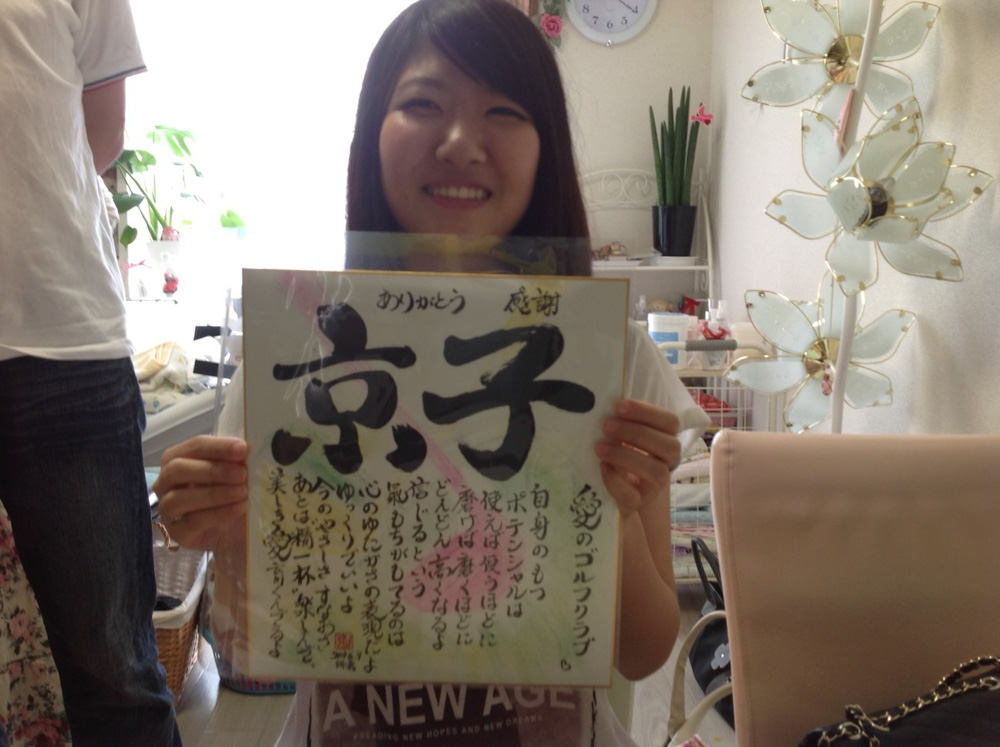 ありがとう 感謝
京子
愛のゴルフクラブ
自身のもつ
ポテンシャルは
使えば使うほどに
磨けば磨くほどに
どんどん高くなるよ
信じるという
氣もちがしてるのは
心のゆたかさの表現だよ
ゆっくりでいいよ
今のやさしさ すなおさ
あとは精一杯 楽しんで
美しき愛 育くんでるよ
A NEW AGE
SPREADING NEW HOPES AND NEW DREAMS
8 7 6 5 4